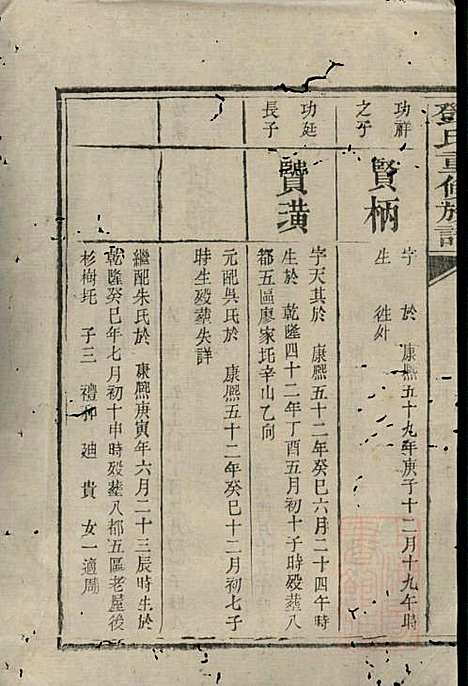 鄧氏重修族譜
功祥
之子
賢柄
字 於 康熙五十九年庚子十二月十九年時
生 徃外
功廷
長子
賢潢
字天其於 康熙五十二年癸巳六月二十四午時
生於 乾隆四十二年丁酉五月初十子時殁塟八
都五區廖家圫辛山乙向
元配吳氏於 康熙五十二年癸巳十二月初七子
時生殁塟失詳
繼配朱氏於 康熙庚寅年六月二十三辰時生於
乾隆癸巳年七月初十申時殁塟八都五區老屋後
杉樹圫 子三 禮和 廸 貴 女一適周